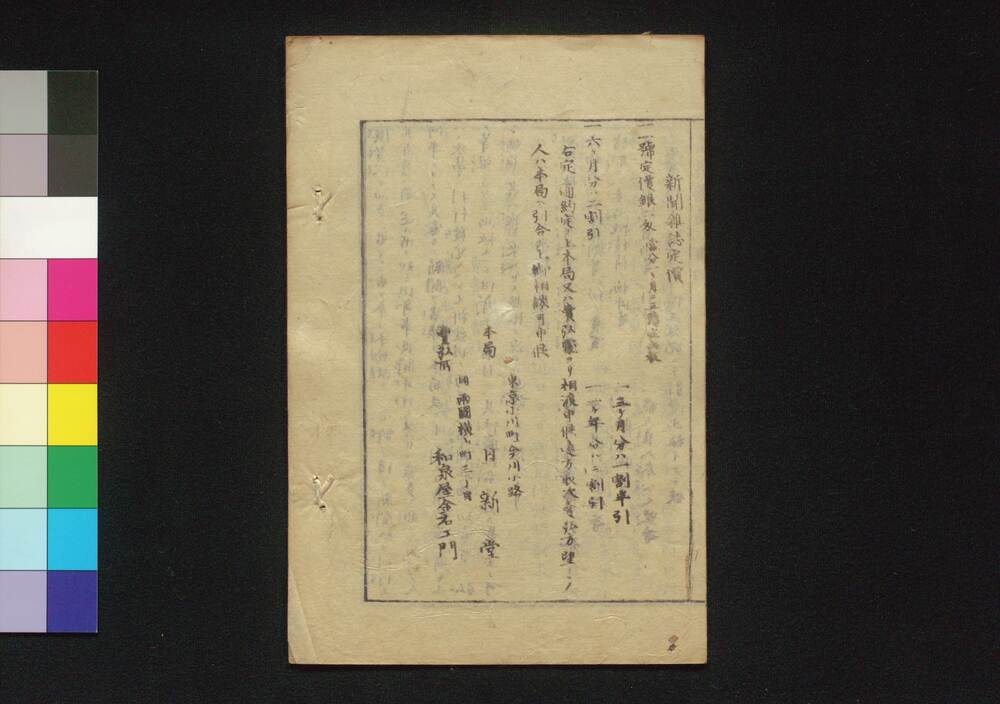 新聞雜誌定價
一一號定價銀二匁當分一ヶ月
一三ヶ月分ハ一割半引
一六ヶ月分ハ二割引
一一ヶ年分ハ三割引
右定通約定之上本局又ハ賣弘處ヨリ相渡申候遠方取次賣弘方望ミノ
人ハ本局ヘ引合御相談可申候
東京小川町今川小路
本局 日新堂
同兩國橫山町三丁目
賣弘所 和泉屋金右エ門